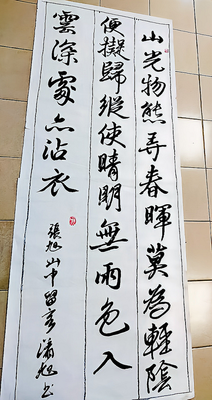 山光物態弄春暉莫為輕陰
便擬歸縱使晴明無雨色入
雲深處亦沾衣
張旭山中留客 书